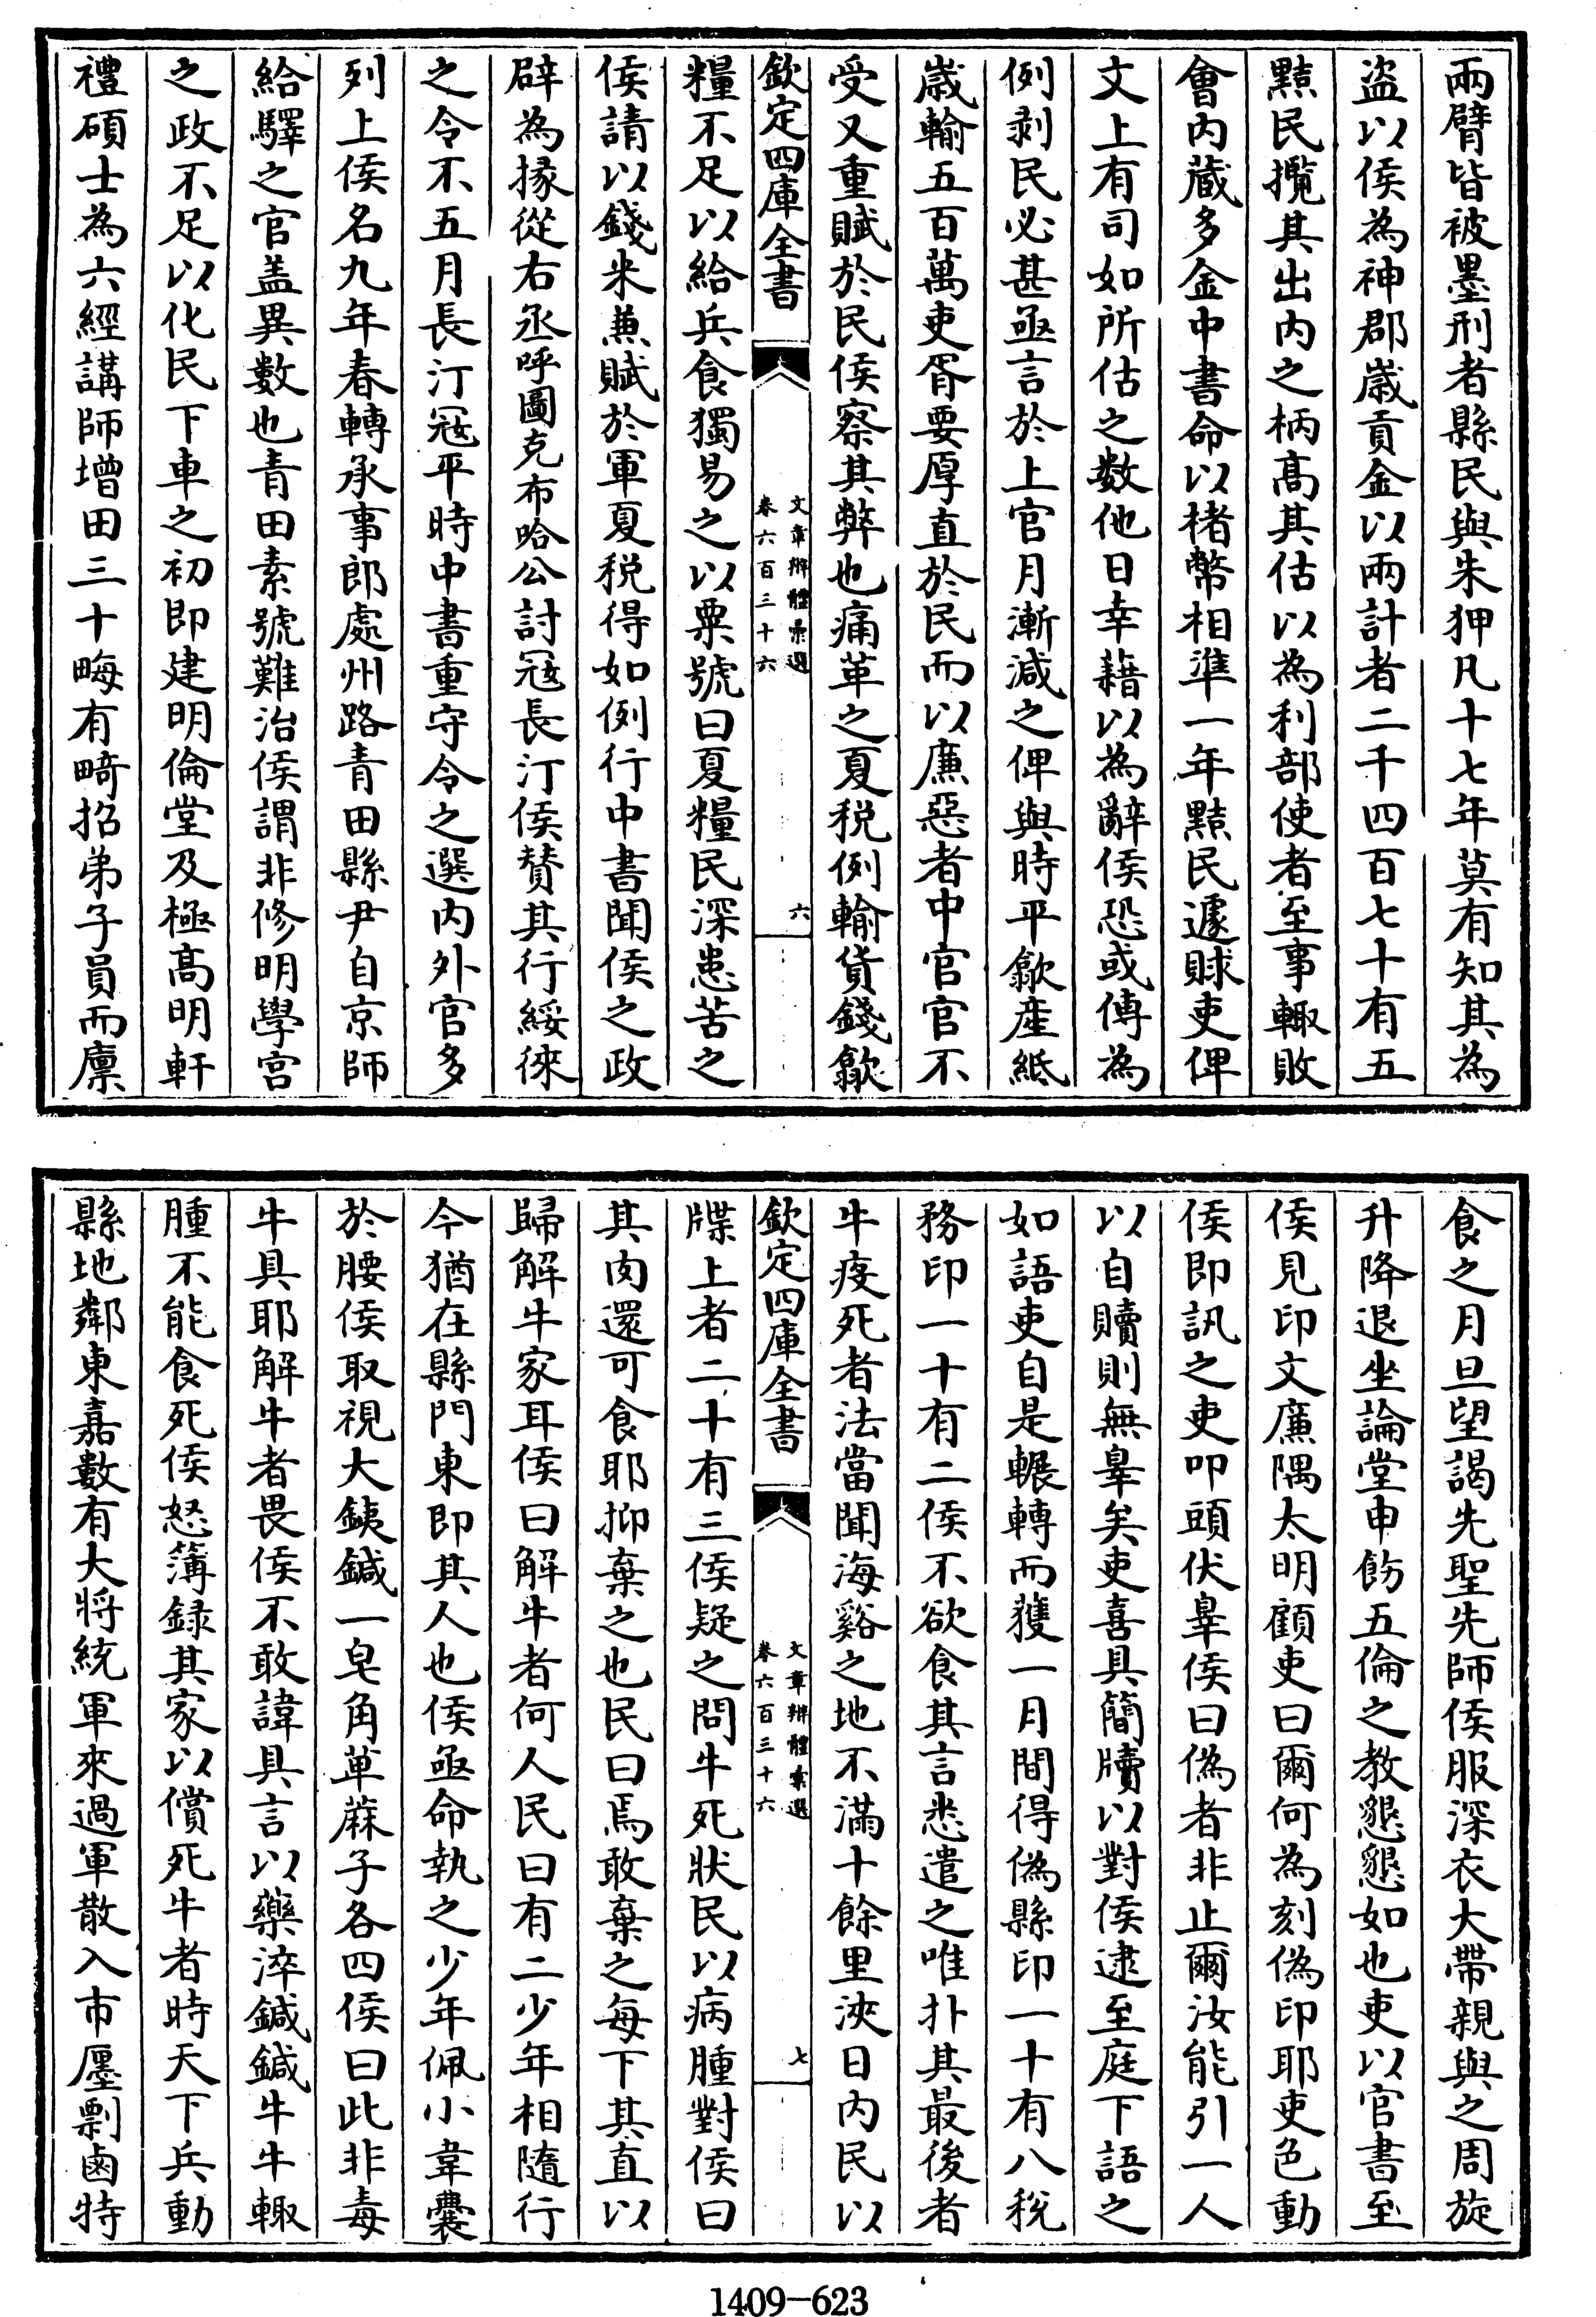 兩臂皆被墨刑者縣民與朱狎凡十七年莫有知其為
盜以侯為神郡嵗貢金以兩計者二千四百七十有五
黠民攬其出內之柄髙其估以為利部使者至事輙敗
㑹内藏多金中書命以楮幣相準一年黠民遽賕吏俾
文上有司如所估之数他日幸藉以為辭侯恐或傳為
例剥民必甚亟言於上官月漸減之俾與時平歙產紙
嵗輸五百萬吏胥要厚直於民而以廉惡者中官官不
受又重賦於民侯察其弊也痛革之夏税例輸貨錢歙
欽定四庫全書
文章辨體彚選
卷六百三十六
六
糧不足以給兵食獨易之以粟號曰夏糧民深患苦之
侯請以錢米兼賦於軍夏税得如例行中書聞侯之政
辟為掾從右丞呼圖克布哈公討冦長汀侯賛其行綏徠
之令不五月長汀冦平時中書重守令之選内外官多
列上侯名九年春轉承事郎處州路青田縣尹自京師
給驛之官盖異數也青田素號難治侯謂非修明學宫
之政不足以化民下車之初即建明倫堂及極髙明軒
禮碩士為六經講師增田三十畮有畸招弟子員而廪
食之月旦望謁先聖先師侯服深衣大帶親與之周旋
升降退坐論堂申飭五倫之教懇懇如也吏以官書至
侯見印文廉隅太明顧吏曰爾何為刻偽印耶吏色動
侯即訊之吏叩頭伏辠侯曰偽者非止爾汝能引一人
以自贖則無辠矣吏喜具簡牘以對侯逮至庭下語之
如語吏自是輾轉而獲一月間得偽縣印一十有八税
務印一十有二侯不欲食其言悉遣之唯扑其最後者
牛疫死者法當聞海谿之地不滿十餘里浹日内民以
欽定四庫全書
文章辨體彚選
卷六百三十六
七
牒上者二十有三侯疑之問牛死狀民以病腫對侯曰
其肉還可食耶抑棄之也民曰焉敢棄之每下其直以
歸解牛家耳侯曰解牛者何人民曰有二少年相隨行
今猶在縣門東即其人也侯亟命執之少年佩小韋囊
於腰侯取視大鐵鍼一皂角萆蔴子各四侯曰此非毒
牛具耶解牛者畏侯不敢諱具言以藥淬鍼鍼牛牛輙
腫不能食死侯怒簿録其家以償死牛者時天下兵動
縣地鄰東嘉數有大將統軍來過軍散入市㕓剽鹵特
1409-623